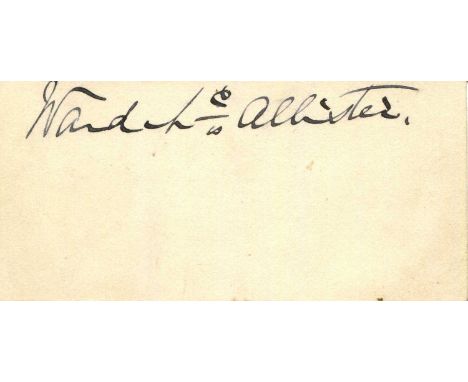 Ward McAllister.